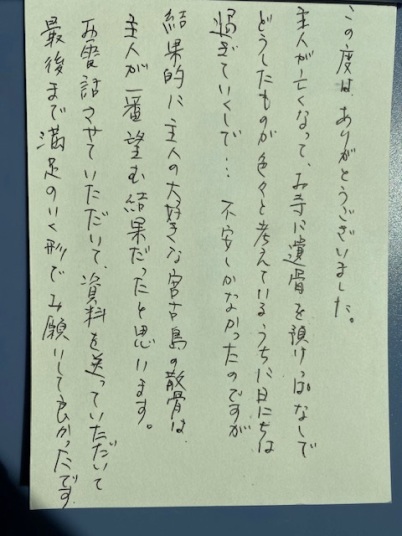 この度は、ありがとうございました。
主人が亡くなって、お寺に遺骨を預けっぱなしで
どうしたものか色々と考えているうちに日にちは
過ぎていくしで… 不安しかなかったのですが
結果的に主人の大好きな宮古島の散骨は、
主人が一番望む結果だったと思います。
お電話させていただいて、資料を送っていただいて
最後まで満足のいく形でお願いして良かったです